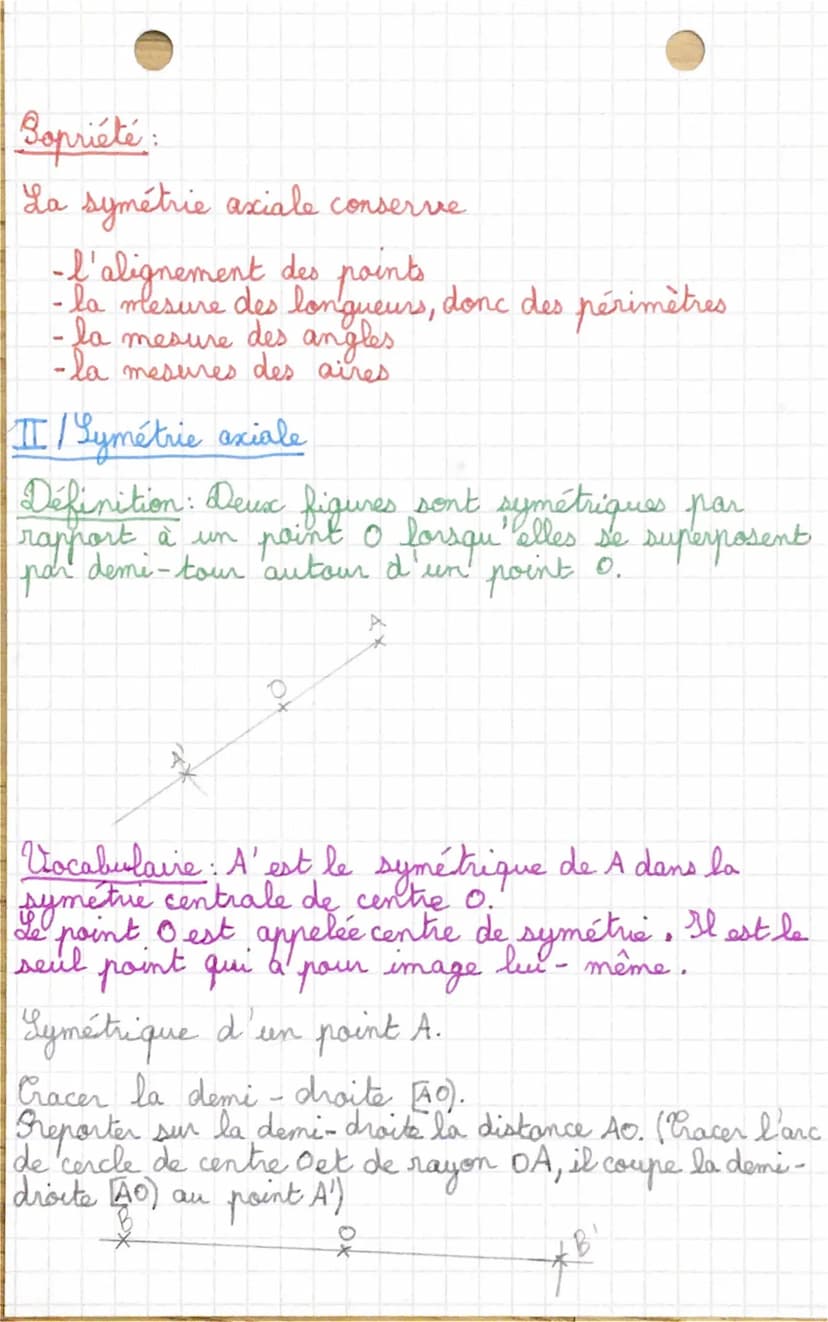 Popriété :
La symétrie axiale conserve
- l'alignement des points
- la mesure des longueurs, donc des périmètres
- la mesure des angles
- la mesures des aires
II / Symétrie axiale
Définition : Deux figures sont symétriques par
rapport à un point O lorsqu'elles se superposent
par demi-tour autour d'un point O.
A
O
A'
Vocabulaire : A' est le symétrique de A dans la
symétrie centrale de centre O.
Le point O est appelée centre de symétrie. Il est le
seul point qui a pour image lui-même.
Symétrique d'un point A.
Tracer la demi-droite [AO).
Reporter sur la demi-droite la distance AO. (Tracer l'arc
de cercle de centre O et de rayon OA, il coupe la demi-
droite [AO) au point A')
B O B'